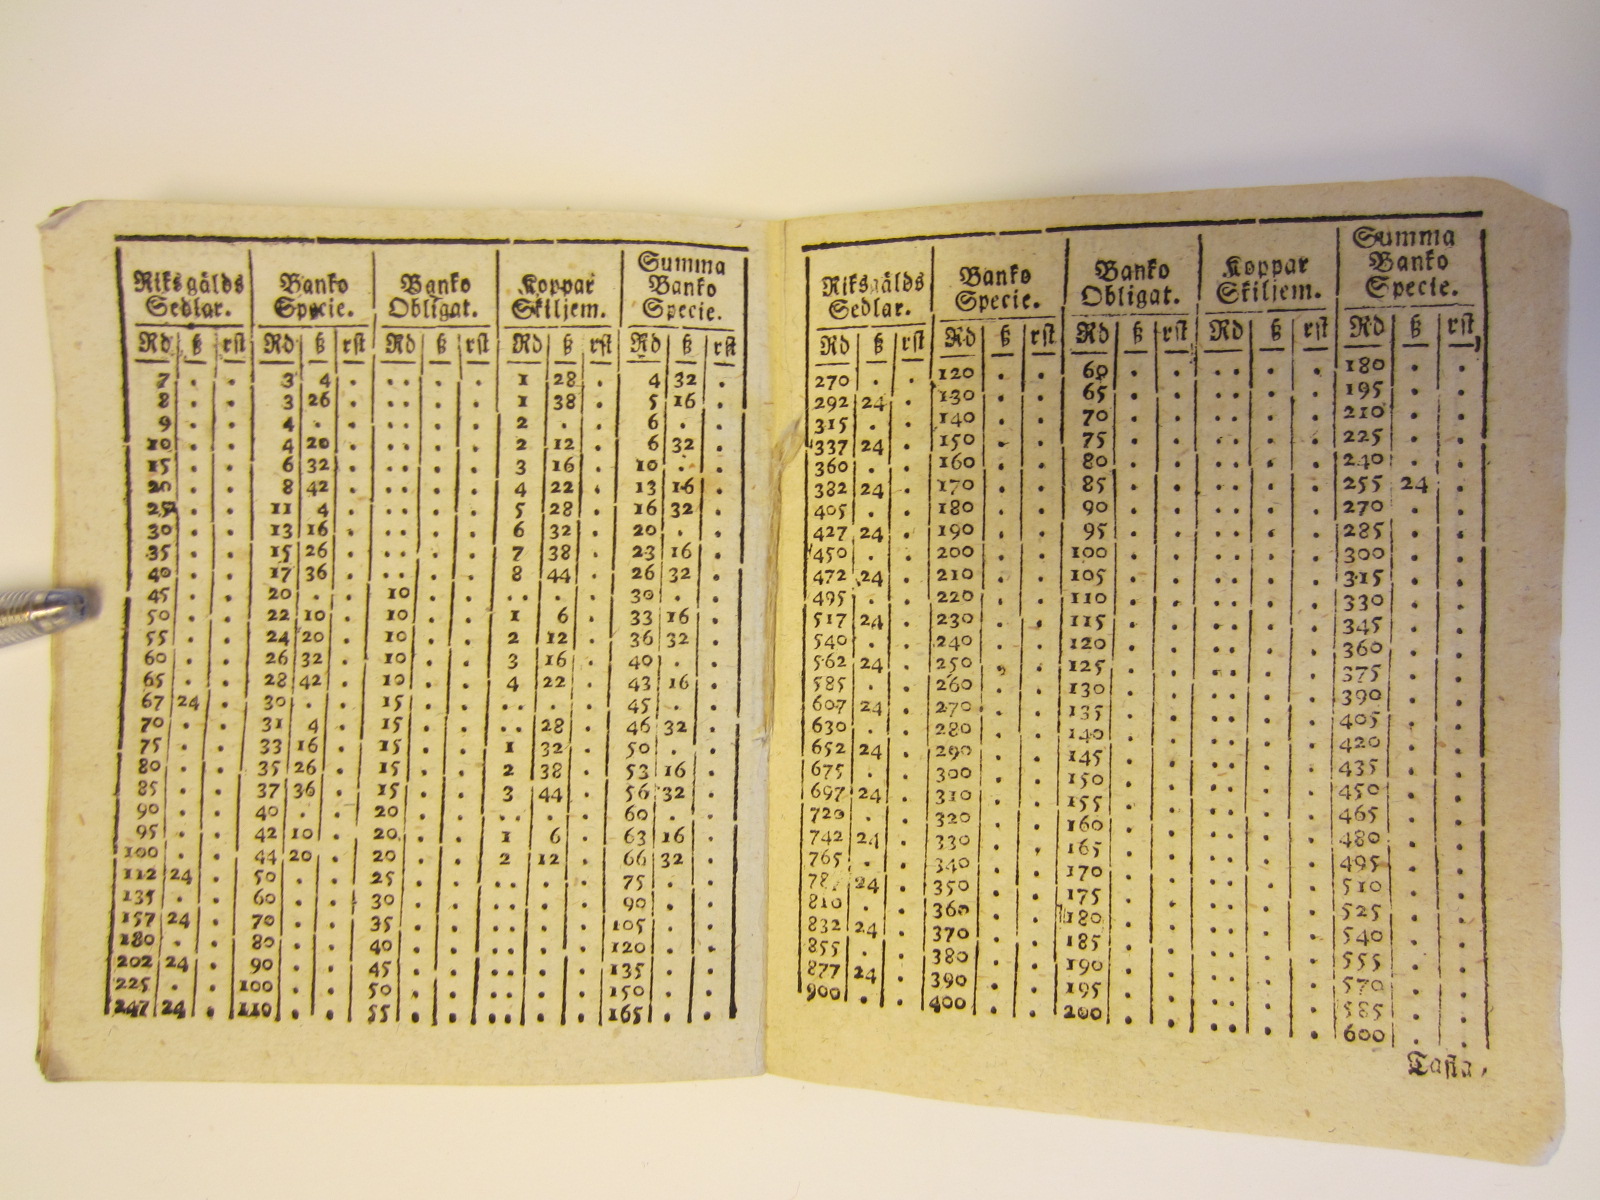 Riksgälds Sedlar. Banko Specie. Banko Obligat. Koppar Skiljem. Summa Banko Specie.
Rd ß rst Rd ß rst Rd ß rst Rd ß rst Rd ß rst
7 . . 3 4 . .. . . 1 28 . 4 32 .
8 . . 3 26 . .. . . 1 38 . 5 16 .
9 . . 4 . . .. . . 2 . . 6 . .
10 . . 4 20 . .. . . 2 12 . 6 32 .
15 . . 6 32 . .. . . 3 16 . 10 . .
20 . . 8 42 . .. . . 4 22 . 13 16 .
25 . . 11 4 . .. . . 5 28 . 16 32 .
30 . . 13 16 . .. . . 6 32 . 20 . .
35 . . 15 26 . .. . . 7 38 . 23 16 .
40 . . 17 36 . .. . . 8 44 . 26 32 .
45 . . 20 . . 10 . . .. . . 30 . .
50 . . 22 10 . 10 . . 1 6 . 33 16 .
55 . . 24 20 . 10 . . 2 12 . 36 32 .
60 . . 26 32 . 10 . . 3 16 . 40 . .
65 . . 28 42 . 10 . . 4 22 . 43 16 .
67 24 . 30 . . 15 . . .. . . 45 . .
70 . . 31 4 . 15 . . .. 28 . 46 32 .
75 . . 33 16 . 15 . . 1 32 . 50 . .
80 . . 35 26 . 15 . . 2 38 . 53 16 .
85 . . 37 36 . 15 . . 3 44 . 56 32 .
90 . . 40 . . 20 . . .. . . 60 . .
95 . . 42 10 . 20 . . 1 6 . 63 16 .
100 . . 44 20 . 20 . . 2 12 . 66 32 .
112 24 . 50 . . 25 . . .. . . 75 . .
135 . . 60 . . 30 . . .. . . 90 . .
157 24 . 70 . . 35 . . .. . . 105 . .
180 . . 80 . . 40 . . .. . . 120 . .
202 24 . 90 . . 45 . . .. . . 135 . .
225 . . 100 . . 50 . . .. . . 150 . .
247 24 . 110 . . 55 . . .. . . 165 . .
Riksgälds Sedlar. Banko Specie. Banko Obligat. Koppar Skiljem. Summa Banko Specie.
Rd ß rst Rd ß rst Rd ß rst Rd ß rst Rd ß rst,
270 . . 120 . . 60 . . .. . . 180 . .
292 24 . 130 . . 65 . . .. . . 195 . .
315 . . 140 . . 70 . . .. . . 210 . .
337 24 . 150 . . 75 . . .. . . 225 . .
360 . . 160 . . 80 . . .. . . 240 . .
382 24 . 170 . . 85 . . .. . . 255 24 .
405 . . 180 . . 90 . . .. . . 270 . .
427 24 . 190 . . 95 . . .. . . 285 . .
450 . . 200 . . 100 . . .. . . 300 . .
472 24 . 210 . . 105 . . .. . . 315 . .
495 . . 220 . . 110 . . .. . . 330 . .
517 24 . 230 . . 115 . . .. . . 345 . .
540 . . 240 . . 120 . . .. . . 360 . .
562 24 . 250 . . 125 . . .. . . 375 . .
585 . . 260 . . 130 . . .. . . 390 . .
607 24 . 270 . . 135 . . .. . . 405 . .
630 . . 280 . . 140 . . .. . . 420 . .
652 24 . 290 . . 145 . . .. . . 435 . .
675 . . 300 . . 150 . . .. . . 450 . .
697 24 . 310 . . 155 . . .. . . 465 . .
720 . . 320 . . 160 . . .. . . 480 . .
742 24 . 330 . . 165 . . .. . . 495 . .
765 . . 340 . . 170 . . .. . . 510 . .
787 24 . 350 . . 175 . . .. . . 525 . .
810 . . 360 . . 180 . . .. . . 540 . .
832 24 . 370 . . 185 . . .. . . 555 . .
855 . . 380 . . 190 . . .. . . 570 . .
877 24 . 390 . . 195 . . .. . . 585 . .
900 . . 400 . . 200 . . .. . . 600 . .